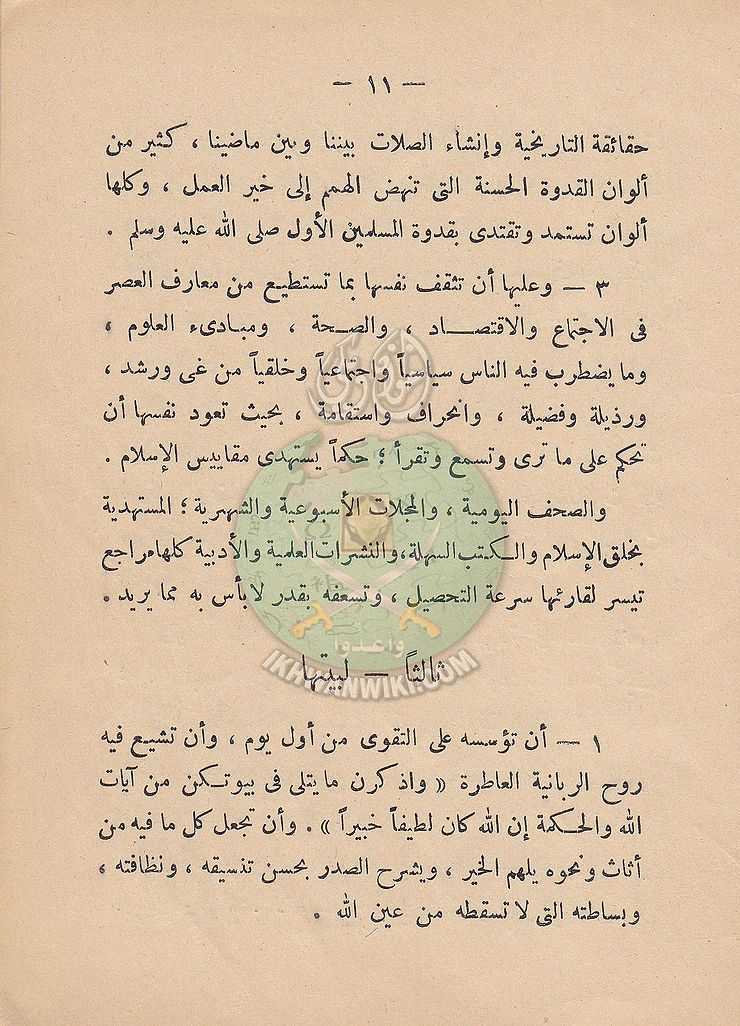 — ١١ —
حقائقة التاريخية وإنشاء الصلات بيننا وبين ماضينا ، كثير من
ألوان القدوة الحسنة التى تنهض الهمم إلى خير العمل ، وكلها
ألوان تستمد وتقتدى بقدوة المسلمين الأول صلى الله عليه وسلم .
٣ — وعليها أن تثقف نفسها بما تستطيع من معارف العصر
فى الاجتماع والاقتصاد ، والصحة ، ومبادىء العلوم ،
وما يضطرب فيه الناس سياسياً واجتماعياً وخلقياً من غى ورشد ،
ورذيلة وفضيلة ، وانحراف واستقامة ، بحيث تعود نفسها أن
تحكم على ما ترى وتسمع وتقرأ ؛ حكماً يستهدى مقاييس الإسلام .
والصحف اليومية ، والمجلات الأسبوعية والشهرية ؛ المستهدية
بخلق الإسلام والكتب السهلة، والنشرات العلمية والأدبية كلها مراجع
تيسر لقارئها سرعة التحصيل ، وتسعفه بقدر لا بأس به مما يريد .
واعدوا
IKHWANWIKI.COM
ثالثاً — لبيتها
١ — أن تؤسسه على التقوى من أول يوم ، وأن تشيع فيه
روح الربانية العاطرة « واذكرن ما يتلى فى بيوتكن من آيات
الله والحكمة إن الله كان لطيفاً خبيراً » . وأن تجعل كل ما فيه من
أثاث ونحوه يلهم الخير ، ويشرح الصدر بحسن تنسيقه ، ونظافته ،
وبساطته التى لا تسقطه من عين الله .